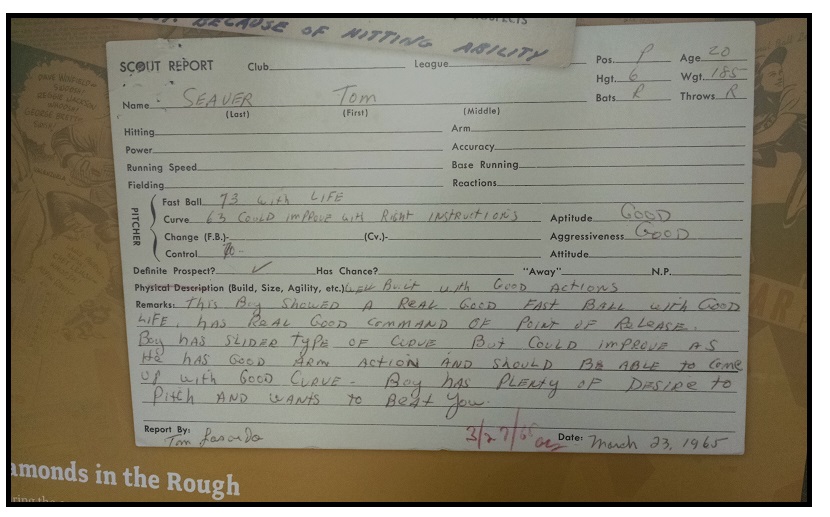 BECAUSE OF HITTING ABILITY
PROSPECTS
SCOUT REPORT Club League Pos. P Age 20
Hgt. 6 Wgt. 185
Name SEAVER Tom Bats R Throws R
(Last) (First) (Middle)
Hitting Arm
Power Accuracy
Running Speed Base Running
Fielding Reactions
PITCHER
Fast Ball 73 with LIFE
Curve 63 COULD IMPROVE with Right INSTRUCTIONS Aptitude GOOD
Change (F.B.)- (Cv.)- Aggressiveness GOOD
Control 70- Attitude
Definite Prospect? ✓ Has Chance? "Away" N.P.
Physical Description (Build, Size, Agility, etc.) WELL Built with GOOD ACTIONS
Remarks: This Boy SHOWED A REAL GOOD FAST BALL with GOOD
LIFE, HAS REAL GOOD COMMAND OF POINT OF RELEASE.
Boy HAS SLIDER TYPE OF CURVE BUT COULD IMPROVE AS
HE HAS GOOD ARM ACTION AND SHOULD BE ABLE to COME
UP with GOOD CURVE - Boy HAS PLENTY OF DESIRE to
PITCH AND WANTS to BEAT You.
Report By: Tom Lasorda 3/27/65 Date: March 23, 1965
DAVE WINFIELD-
GEORGE BRETT-
amonds in the Rough
ring the